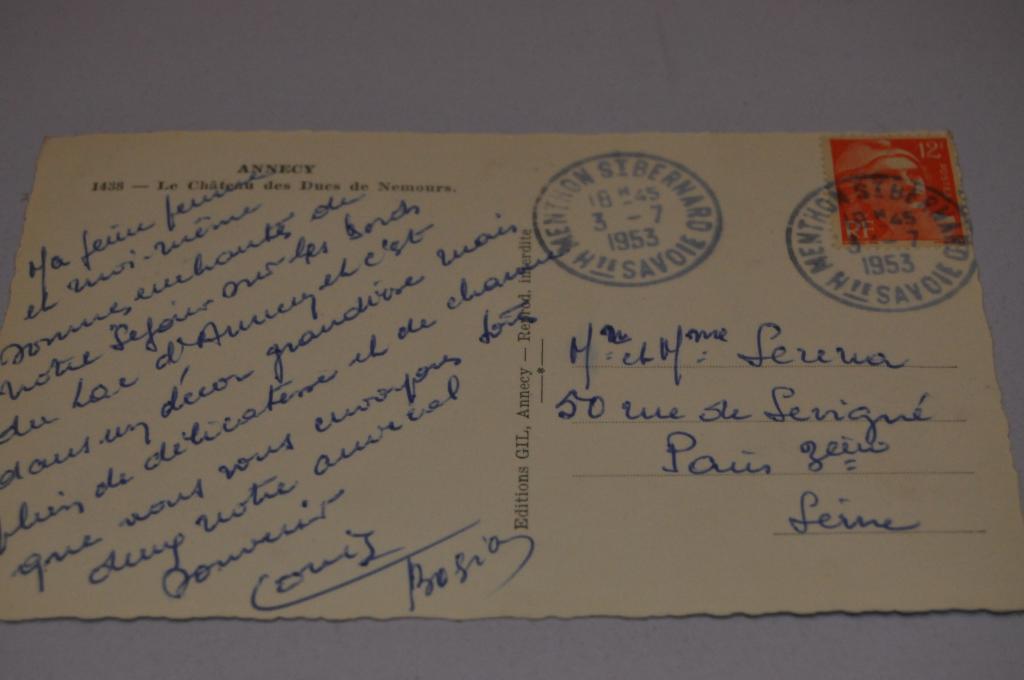 ANNECY
1438 — Le Château des Ducs de Nemours.
Ma jeune femme
et moi-même
sommes enchantés de
notre Séjour sur les bords
du Lac d'Annecy et c'est
dans un décor grandiose mais
plein de délicatesse et de charme
que nous vous envoyons tous
deux notre amical
souvenir
Louis
Editions GIL, Annecy — Reprod. interdite
MENTHON ST BERNARD
18 H 45
3 - 7
1953
HTE SAVOIE
12F
RF
MENTHON ST BERNARD
18 H 45
3 - 7
1953
HTE SAVOIE
Mr et Mme Serena
50 rue de Sevigné
Paris 3eme
Seine